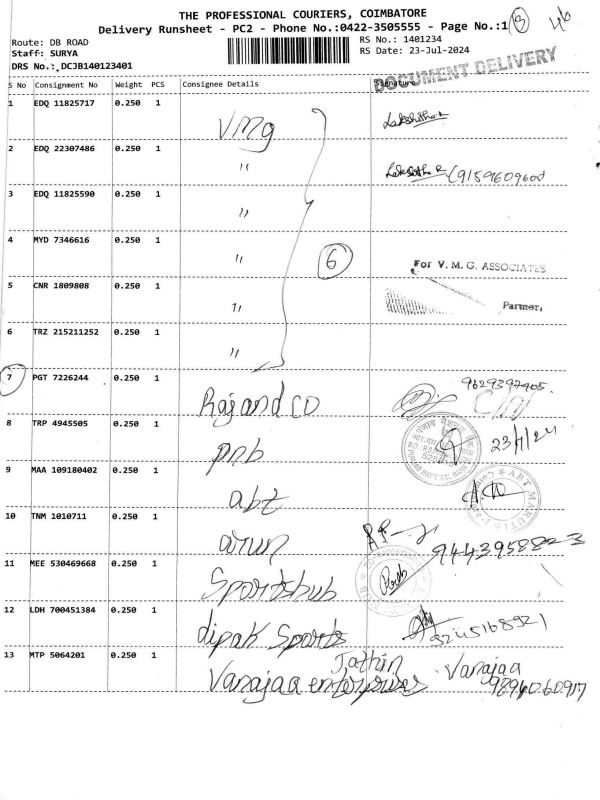 THE PROFESSIONAL COURIERS, COIMBATORE
Delivery Runsheet - PC2 - Phone No.:0422-3505555 - Page No.:1
Route: DB ROAD
Staff: SURYA
DRS No.: DCJB140123401
RS No.: 1401234
RS Date: 23-Jul-2024
DOCUMENT DELIVERY
S No Consignment No Weight PCS Consignee Details Signature
1 EDQ 11825717 0.250 1 VMG
2 EDQ 22307486 0.250 1 "
3 EDQ 11825590 0.250 1 "
4 MYD 7346616 0.250 1 " 6 For V. M. G. ASSOCIATES
5 CNR 1809808 0.250 1 " Partner.
6 TRZ 215211252 0.250 1 "
7 PGT 7226244 0.250 1 Raj and CO 9629397405
8 TRP 4945505 0.250 1 pnb 23/7/24
9 MAA 109180402 0.250 1 abt
10 TNM 1010711 0.250 1 arun 9443958823
11 MEE 530469668 0.250 1 Sportshub
12 LDH 700451384 0.250 1 dipak Sports
13 MTP 5064201 0.250 1 Vanajaa enterprises Vanajaa
9894060917